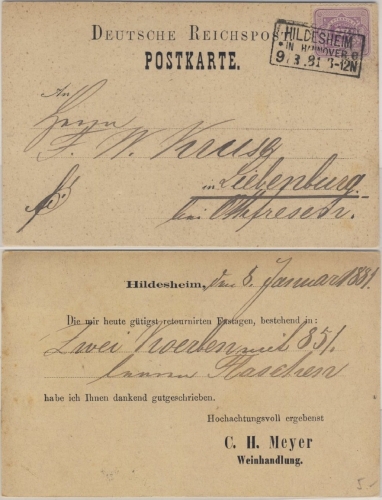 DEUTSCHE REICHSPOST
POSTKARTE.
HILDESHEIM
* IN HANNOVER
81 8-12N
An
Herrn
F. W. Kruse
in Liebenburg
bei Othfresen.
Hildesheim, den 8. Januar 1881.
Die mir heute gütigst retournirten Fastagen, bestehend in:
Zwei Koerben mit 85/1
leeren Flaschen
habe ich Ihnen dankend gutgeschrieben.
Hochachtungsvoll ergebenst
C. H. Meyer
Weinhandlung.
5.-